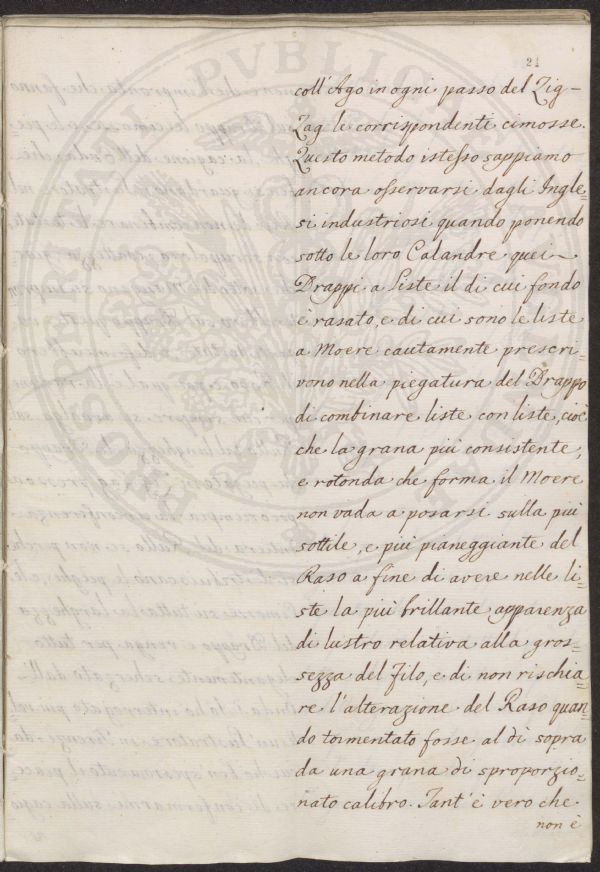 21
coll'Ago in ogni passo del Zig-
Zag le corrispondenti cimosse.
Questo metodo istesso sappiamo
ancora osservarsi dagli Ingle=
si industriosi quando ponendo
sotto le loro Calandre quei
Drappi a Liste il di cui fondo
è rasato, e di cui sono le liste
a Moere cautamente prescri=
vono nella piegatura del Drappo
di combinare liste con liste, cioè
che la grana più consistente,
e rotonda che forma il Moere
non vada a posarsi sulla più
sottile, e più pianeggiante del
Raso a fine di avere nelle li=
ste la più brillante apparenza
di lustro relativa alla gros=
sezza del filo, e di non rischia=
re l'alterazione del Raso quan=
do tormentato fosse al di sopra
da una grana di sproporzio=
nato calibro. Tant'è vero che
non è